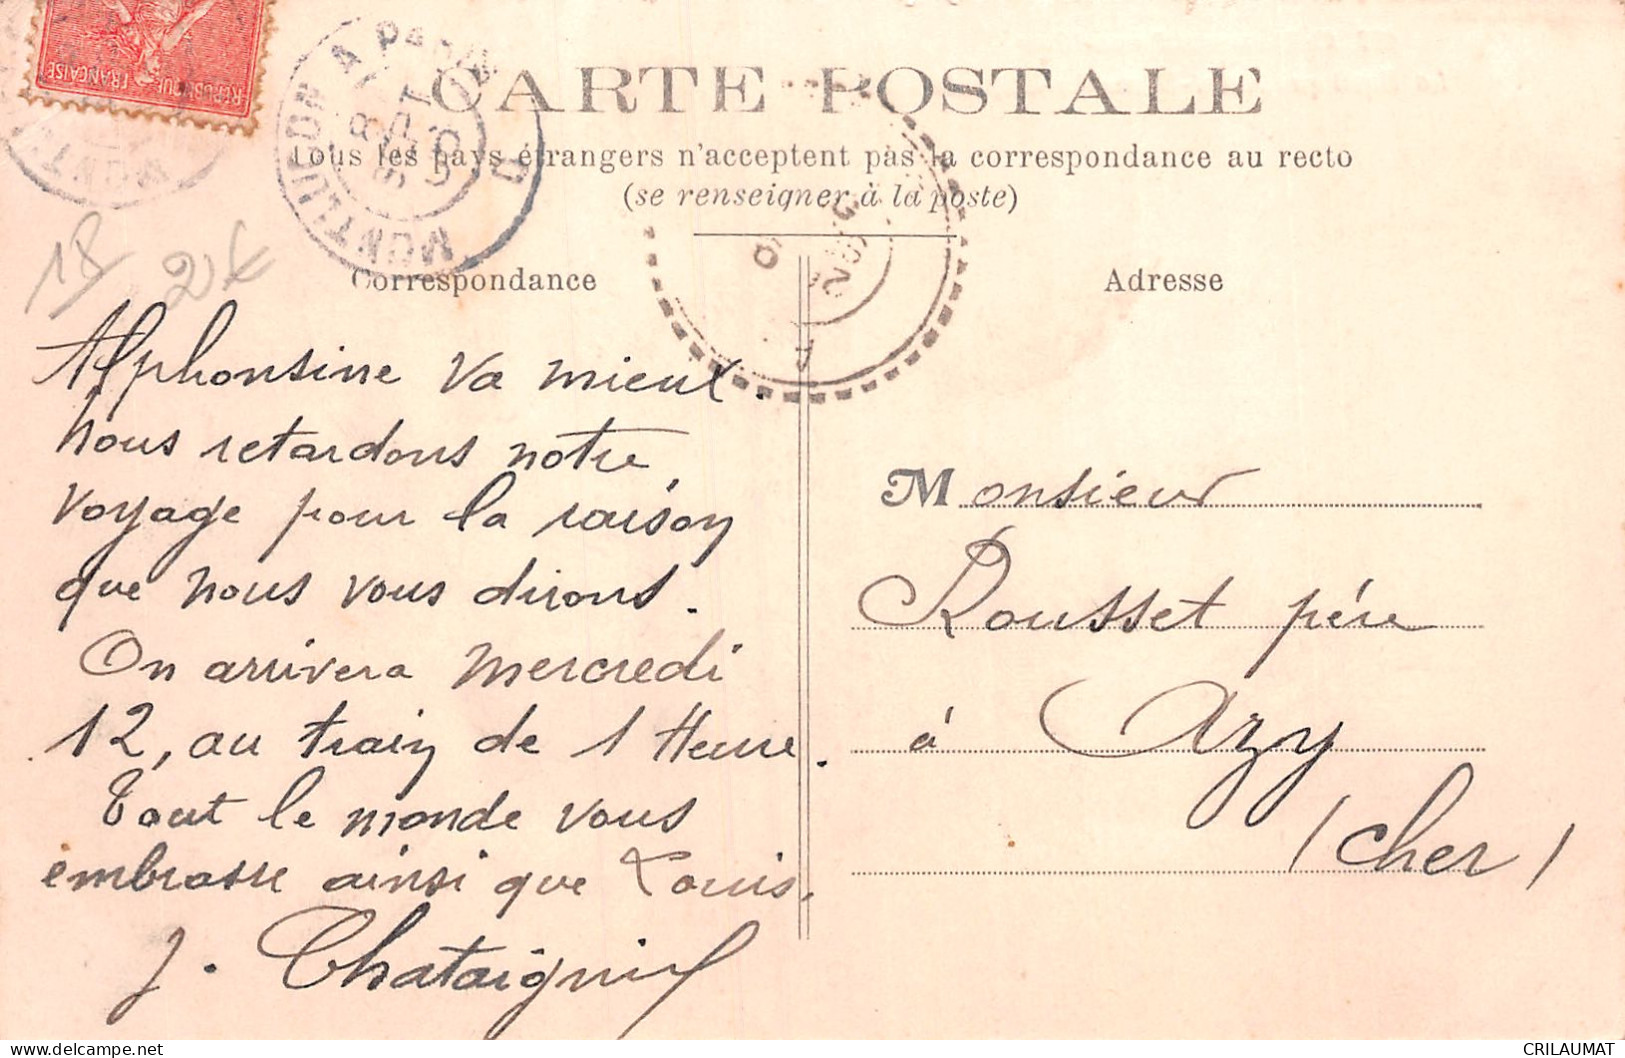 REPUBLIQUE FRANÇAISE
MONTLUÇON A PARIS
CARTE POSTALE
Tous les pays étrangers n'acceptent pas la correspondance au recto
(se renseigner à la poste)
18 2€
Correspondance
Alphonsine va mieux.
nous retardons notre
voyage pour la raison
que nous vous dirons.
On arrivera mercredi
12, au train de 1 Heure.
Tout le monde vous
embrasse ainsi que Louis.
J. Chataignier
Adresse
Monsieur
Rousset père
à Azy
(Cher)
CRILAUMAT